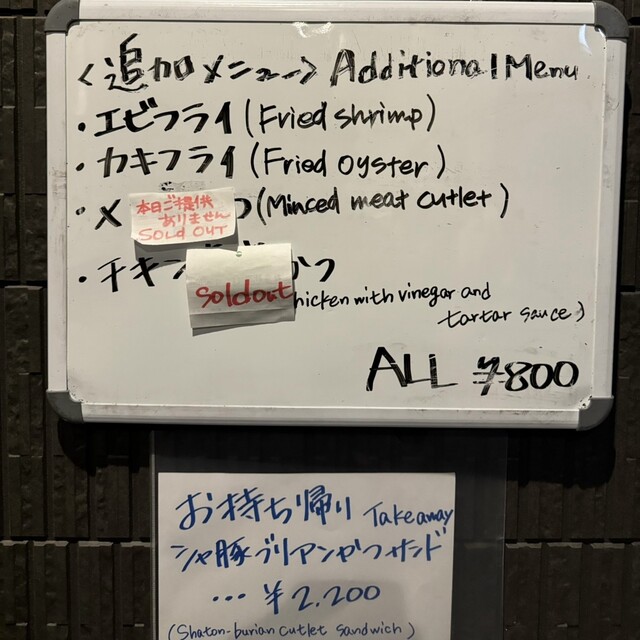 <追加メニュー> Additional Menu
・エビフライ(Fried shrimp)
・カキフライ(Fried oyster)
・メ つ(Minced meat cutlet)
本日ご提供
ありません
SOLD OUT
・チキン かつ
Sold out
hicken with vinegar and
tartar sauce)
ALL ¥800
お持ち帰り Takeaway
シャ豚ブリアンかつサンド
... ¥2,200
(Shaton-burian cutlet sandwich)